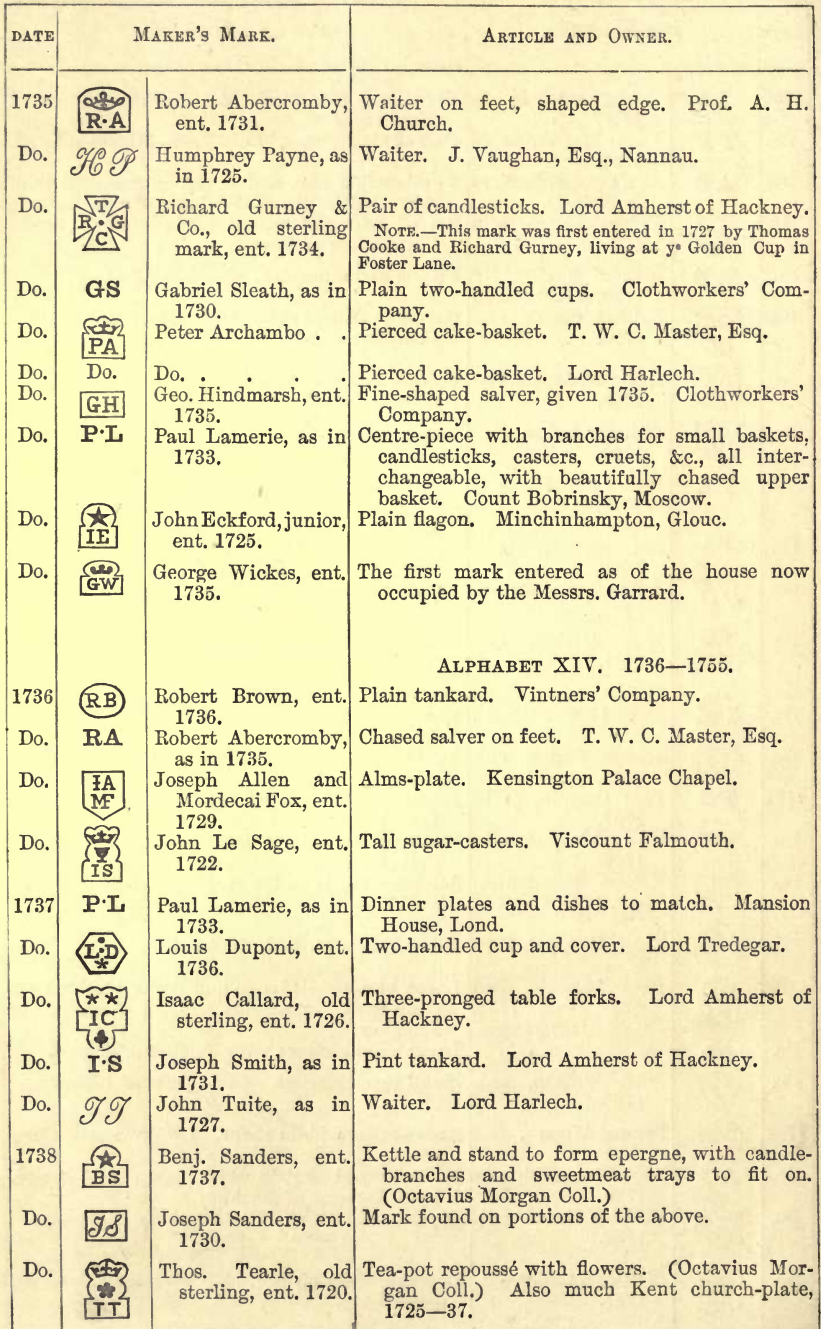 DATE MAKER'S MARK. ARTICLE AND OWNER.
1735 R·A Robert Abercromby, Waiter on feet, shaped edge. Prof. A. H.
ent. 1731. Church.
Do. HP Humphrey Payne, as Waiter. J. Vaughan, Esq., Nannau.
in 1725.
Do. T R G C Richard Gurney & Pair of candlesticks. Lord Amherst of Hackney.
Co., old sterling NOTE.—This mark was first entered in 1727 by Thomas
mark, ent. 1734. Cooke and Richard Gurney, living at yᵉ Golden Cup in
Foster Lane.
Do. GS Gabriel Sleath, as in Plain two-handled cups. Clothworkers' Com-
1730. pany.
Do. PA Peter Archambo . . Pierced cake-basket. T. W. C. Master, Esq.
Do. Do. Do. . . . . Pierced cake-basket. Lord Harlech.
Do. GH Geo. Hindmarsh, ent. Fine-shaped salver, given 1735. Clothworkers'
1735. Company.
Do. P·L Paul Lamerie, as in Centre-piece with branches for small baskets,
1733. candlesticks, casters, cruets, &c., all inter-
changeable, with beautifully chased upper
basket. Count Bobrinsky, Moscow.
Do. IE John Eckford, junior, Plain flagon. Minchinhampton, Glouc.
ent. 1725.
Do. GW George Wickes, ent. The first mark entered as of the house now
1735. occupied by the Messrs. Garrard.
ALPHABET XIV. 1736—1755.
1736 RB Robert Brown, ent. Plain tankard. Vintners' Company.
1736.
Do. RA Robert Abercromby, Chased salver on feet. T. W. C. Master, Esq.
as in 1735.
Do. IA MF Joseph Allen and Alms-plate. Kensington Palace Chapel.
Mordecai Fox, ent.
1729.
Do. IS John Le Sage, ent. Tall sugar-casters. Viscount Falmouth.
1722.
1737 P·L Paul Lamerie, as in Dinner plates and dishes to match. Mansion
1733. House, Lond.
Do. L·D Louis Dupont, ent. Two-handled cup and cover. Lord Tredegar.
1736.
Do. IC Isaac Callard, old Three-pronged table forks. Lord Amherst of
sterling, ent. 1726. Hackney.
Do. I·S Joseph Smith, as in Pint tankard. Lord Amherst of Hackney.
1731.
Do. JT John Tuite, as in Waiter. Lord Harlech.
1727.
1738 BS Benj. Sanders, ent. Kettle and stand to form epergne, with candle-
1737. branches and sweetmeat trays to fit on.
(Octavius Morgan Coll.)
Do. JS Joseph Sanders, ent. Mark found on portions of the above.
1730.
Do. TT Thos. Tearle, old Tea-pot repoussé with flowers. (Octavius Mor-
sterling, ent. 1720. gan Coll.) Also much Kent church-plate,
1725—37.